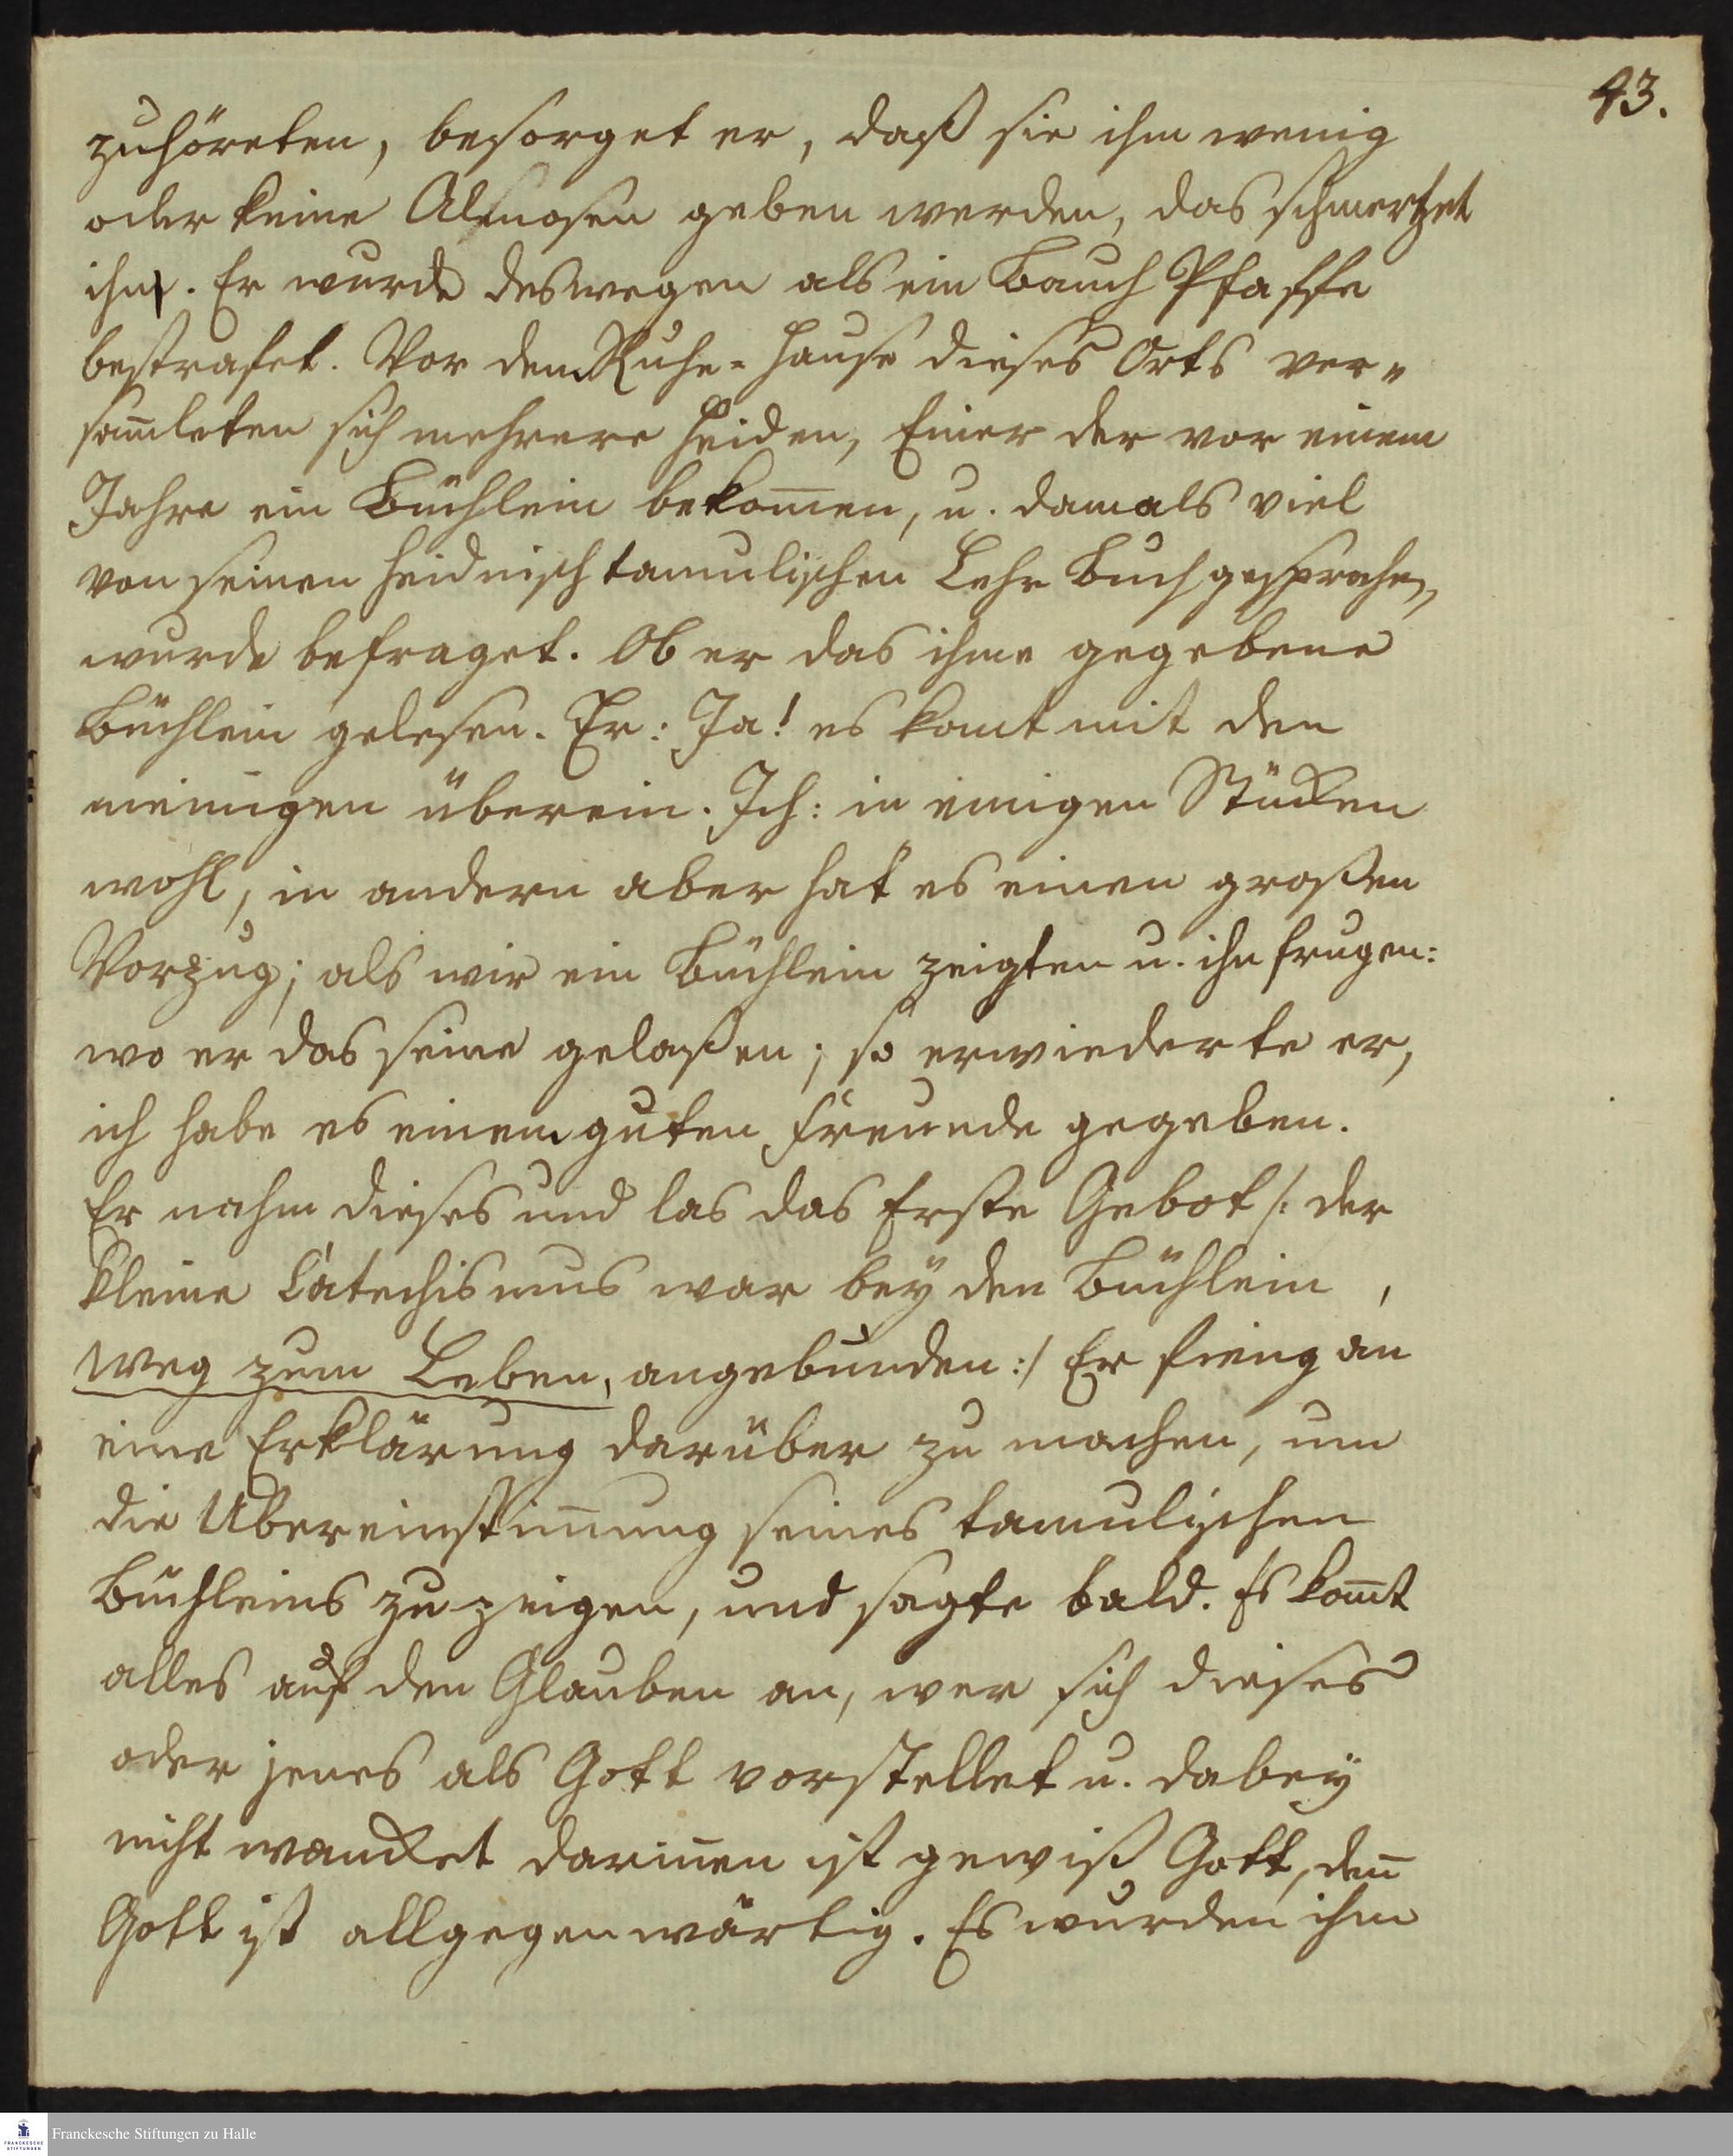 43.
zuhöreten, besorget er, daß sie ihm wenig
oder keine Almosen geben werden, das schmertzet
ihn. Er wurde deswegen als ein Bauch Pfaffe
bestrafet. Vor dem Ruhe-Hause dieses Orts ver„
sam̄leten sich mehrere Heiden, Einer der vor einem
Jahre ein Büchlein bekom̄en, u. damals viel
von seinen heidnisch tamulischen Lehr Buch gesprochen,
wurde befraget. Ob er das ihme gegebene
Büchlein gelesen. Er: Ja! es komt mit den
meinigen überein. Ich: in einigen Stücken
wohl, in andern aber hat es einen großen
Vorzug; als wir ein Büchlein zeigten u. ihn frugen:
wo er das seine gelaßen; so erwiederte er,
ich habe es einem guten Freunde gegeben.
Er nahm dieses und las das Erste Gebot /: der
kleine Catechismus war bey den Büchlein,
Weg zum Leben, angebunden :/ Er fieng an
eine Erklärung darüber zu machen, um
die Ubereinstim̄ung seines tamulischen
Büchleins zu zeigen, und sagte bald. Es kom̄t
alles auf den Glauben an, wer sich dieses
oder jenes als Gott vorstellet u. dabey
nicht wancket darin̄en ist gewiß Gott, den̄
Gott ist allgegenwärtig. Es wurden ihm
Franckesche Stiftungen zu Halle
FRANCKESCHE
STIFTUNGEN